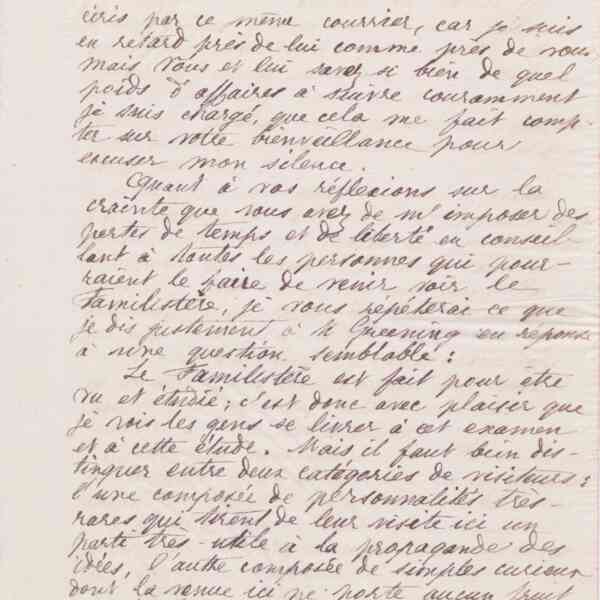 cris par ce même courrier, car je suis
en retard près de lui comme près de vous
mais vous et lui savez si bien de quel
poids d'affaires à suivre couramment
je suis chargé, que cela me fait comp-
ter sur votre bienveillance pour
excuser mon silence.
Quant à vos réflexions sur la
crainte que vous avez de m'imposer des
pertes de temps et de liberté en conseil-
lant à toutes les personnes qui pour-
raient le faire de venir voir le
Familistère, je vous répéterai ce que
je dis justement à M Greening en réponse
à une question semblable :
Le Familistère est fait pour être
vu et étudié ; c'est donc avec plaisir que
je vois les gens se livrer à cet examen
et à cette étude. Mais il faut bien dis-
tinguer entre deux catégories de visiteurs :
l'une composée de personnalités très-
rares qui tirent de leur visite ici un
parti très-utile à la propagande des
idées, l'autre composée de simples curieux
dont la venue ici ne porte aucun fruit